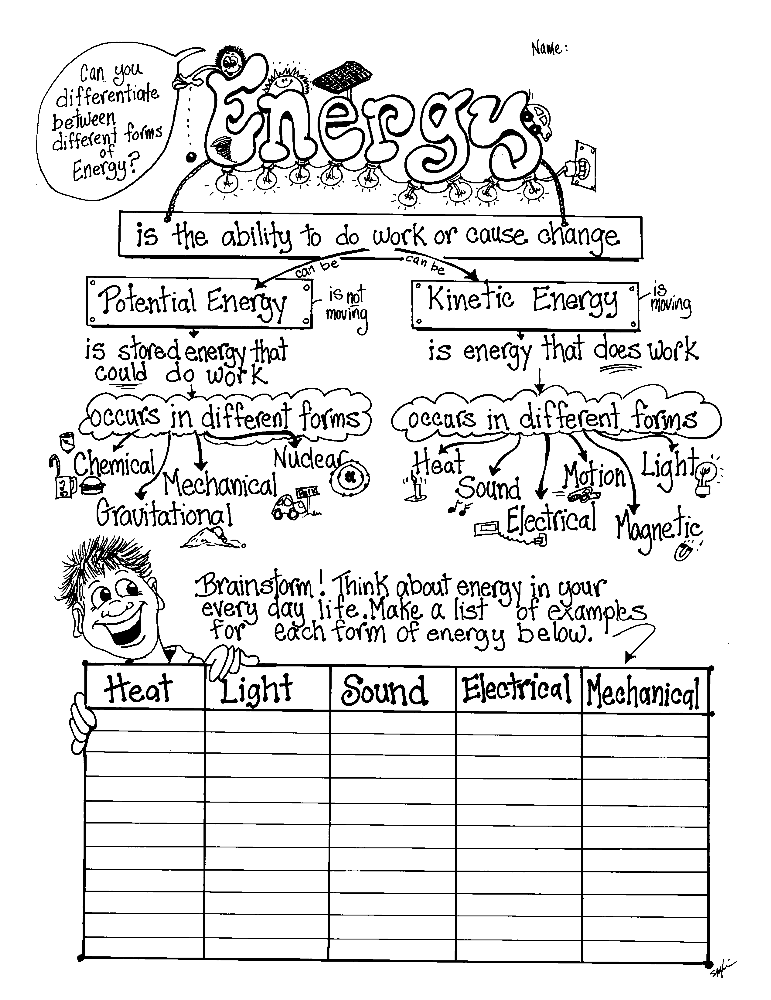 Name:
Can you
differentiate
between
different forms
of
Energy?
Energy
is the ability to do work or cause change
can be
can be
Potential Energy
is not
moving
Kinetic Energy
is
moving
is stored energy that
could do work
is energy that does work
occurs in different forms
occurs in different forms
Chemical
Nuclear
Mechanical
Gravitational
Heat
Sound
Electrical
Motion
Light
Magnetic
Brainstorm! Think about energy in your
every day life. Make a list of examples
for each form of energy below.
Heat Light Sound Electrical Mechanical